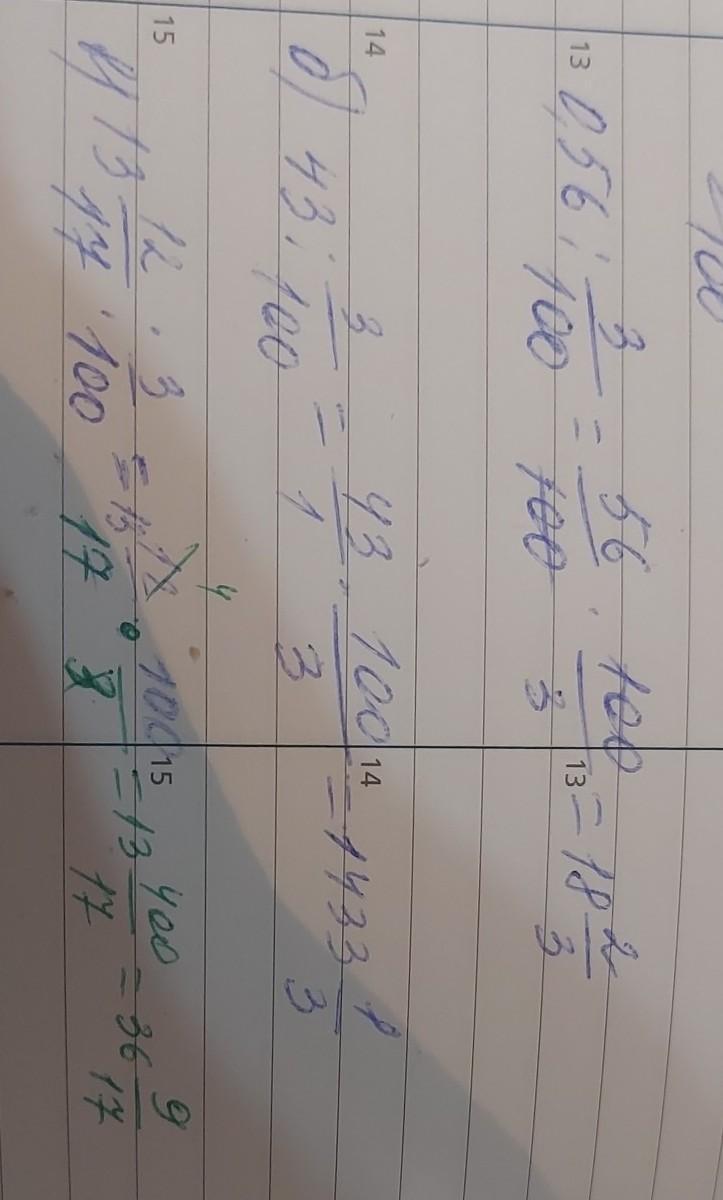 100
13 0,56 : 3/100 = 56/100 · 100/3 = 18 2/3 13
14 б) 43 : 3/100 = 43/1 · 100/3 = 1433 1/3 14
15 13 12/17 : 3/100 = 13 12/17 · 100/3 = 13 400/17 = 36 9/17 15
4